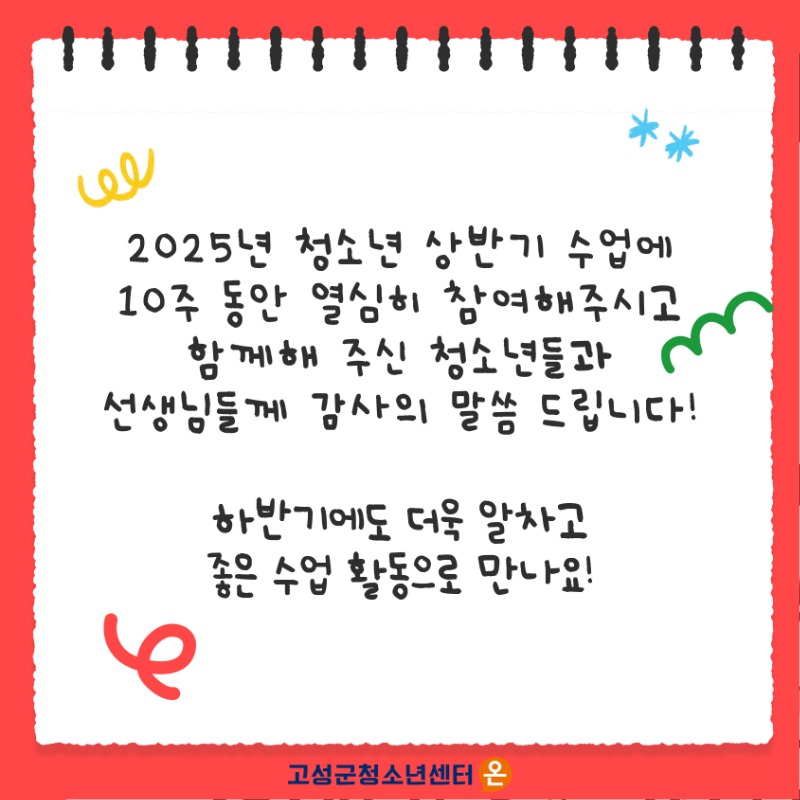 2025년 청소년 상반기 수업에
10주 동안 열심히 참여해주시고
함께해 주신 청소년들과
선생님들께 감사의 말씀 드립니다!
하반기에도 더욱 알차고
좋은 수업 활동으로 만나요!
고성군청소년센터 온